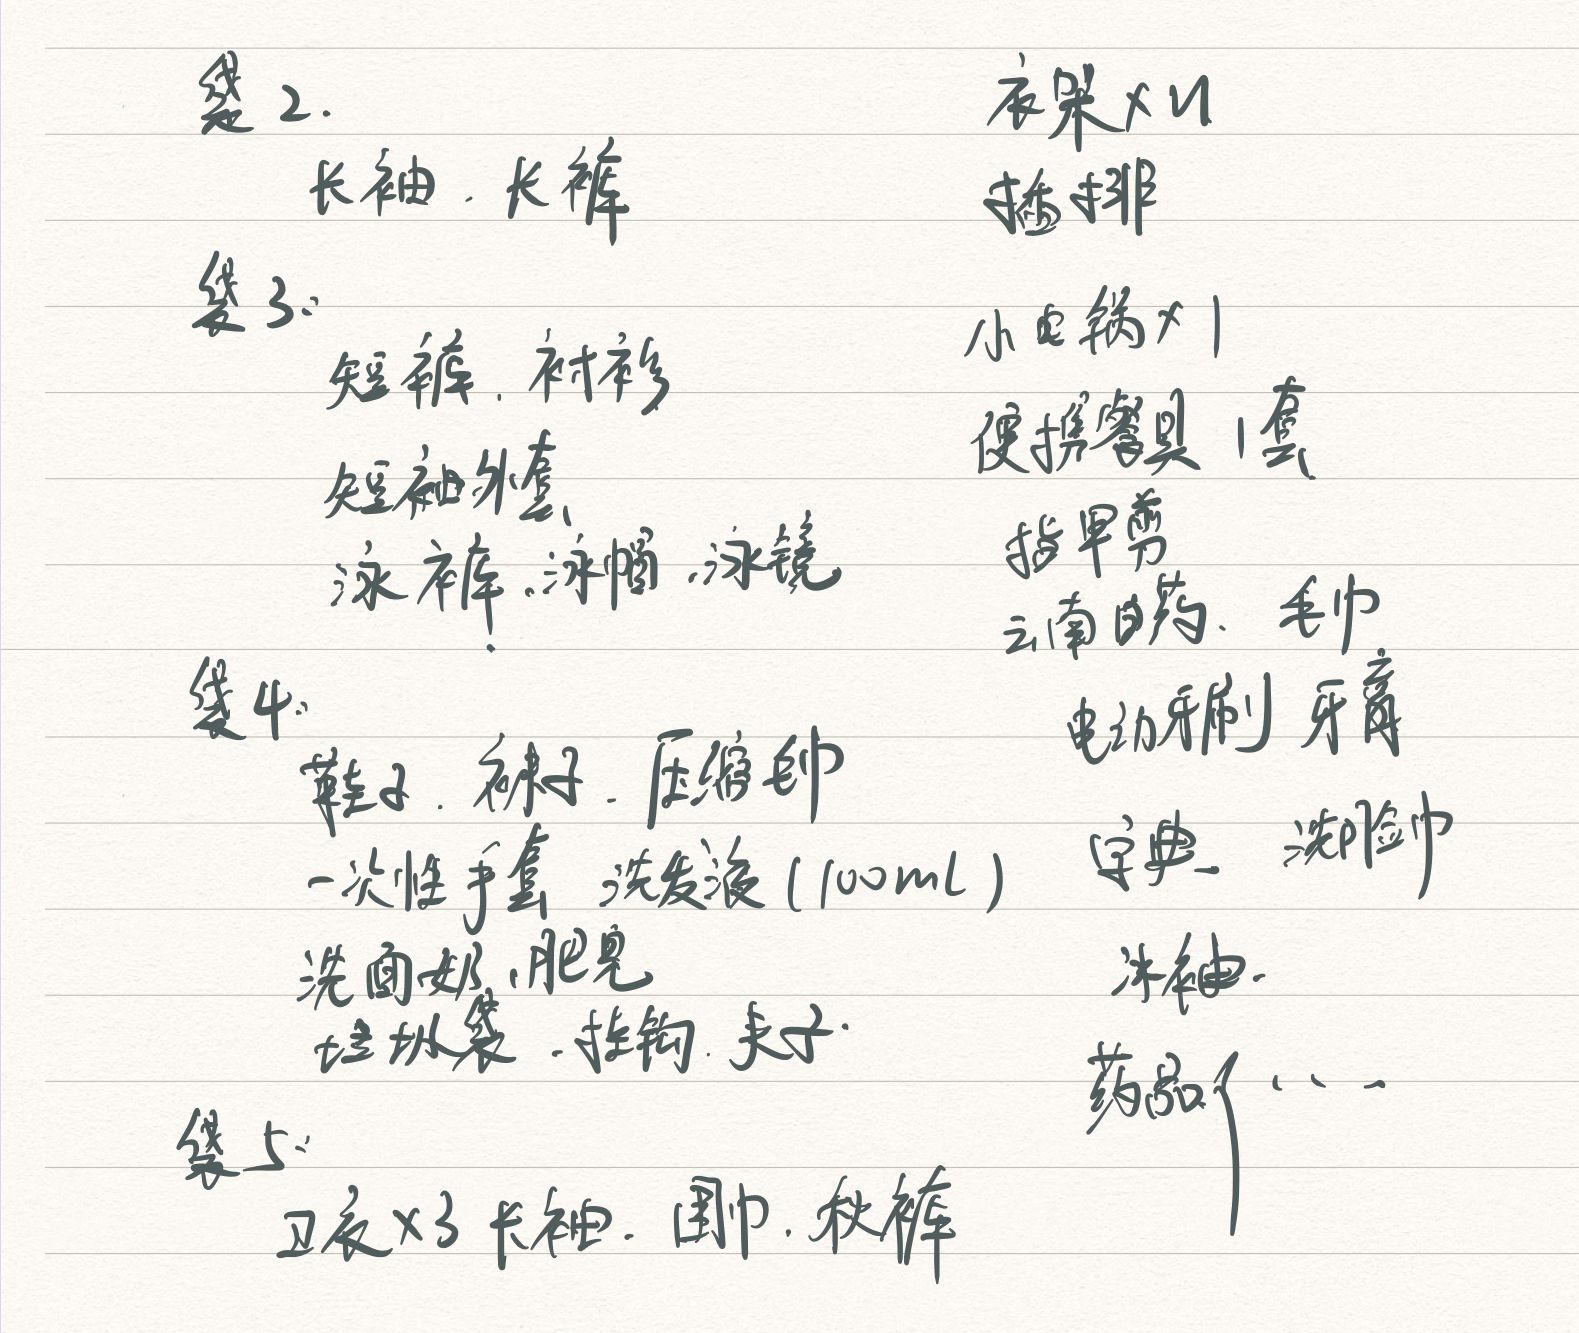 袋2.
长袖.长裤
袋3:
短裤.衬衫
短袖外套、
泳裤.泳帽.泳镜
袋4:
鞋子.袜子.压缩毛巾
一次性手套 洗发液(100mL)
洗面奶.肥皂
垃圾袋.挂钩.夹子.
袋5:
卫衣×3 长袖.围巾.秋裤
衣架×4
插排
小电锅×1
便携餐具1套
指甲剪
云南白药.毛巾
电动牙刷 牙膏
字典 洗脸巾
冰袖.
药品{、、-